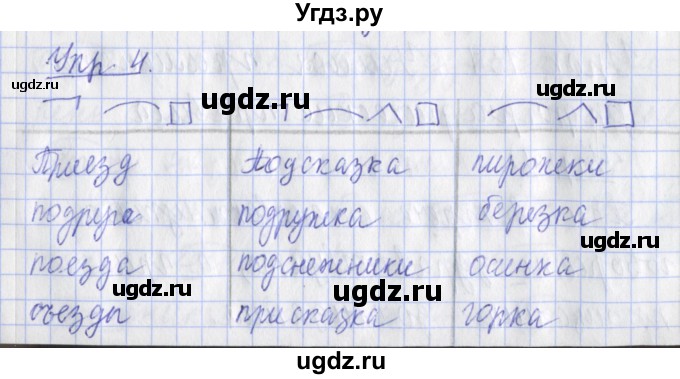 Угдз.ру
Упр 4.
Приезд Подсказка пирожки
подруга подружка березка
поезда подснежники осинка
съезды присказка горка
ugdz.ru ugdz.ru ugdz.ru
ugdz.ru ugdz.ru
ugdz.ru ugdz.ru
ugdz.ru ugdz.ru
ugdz.ru